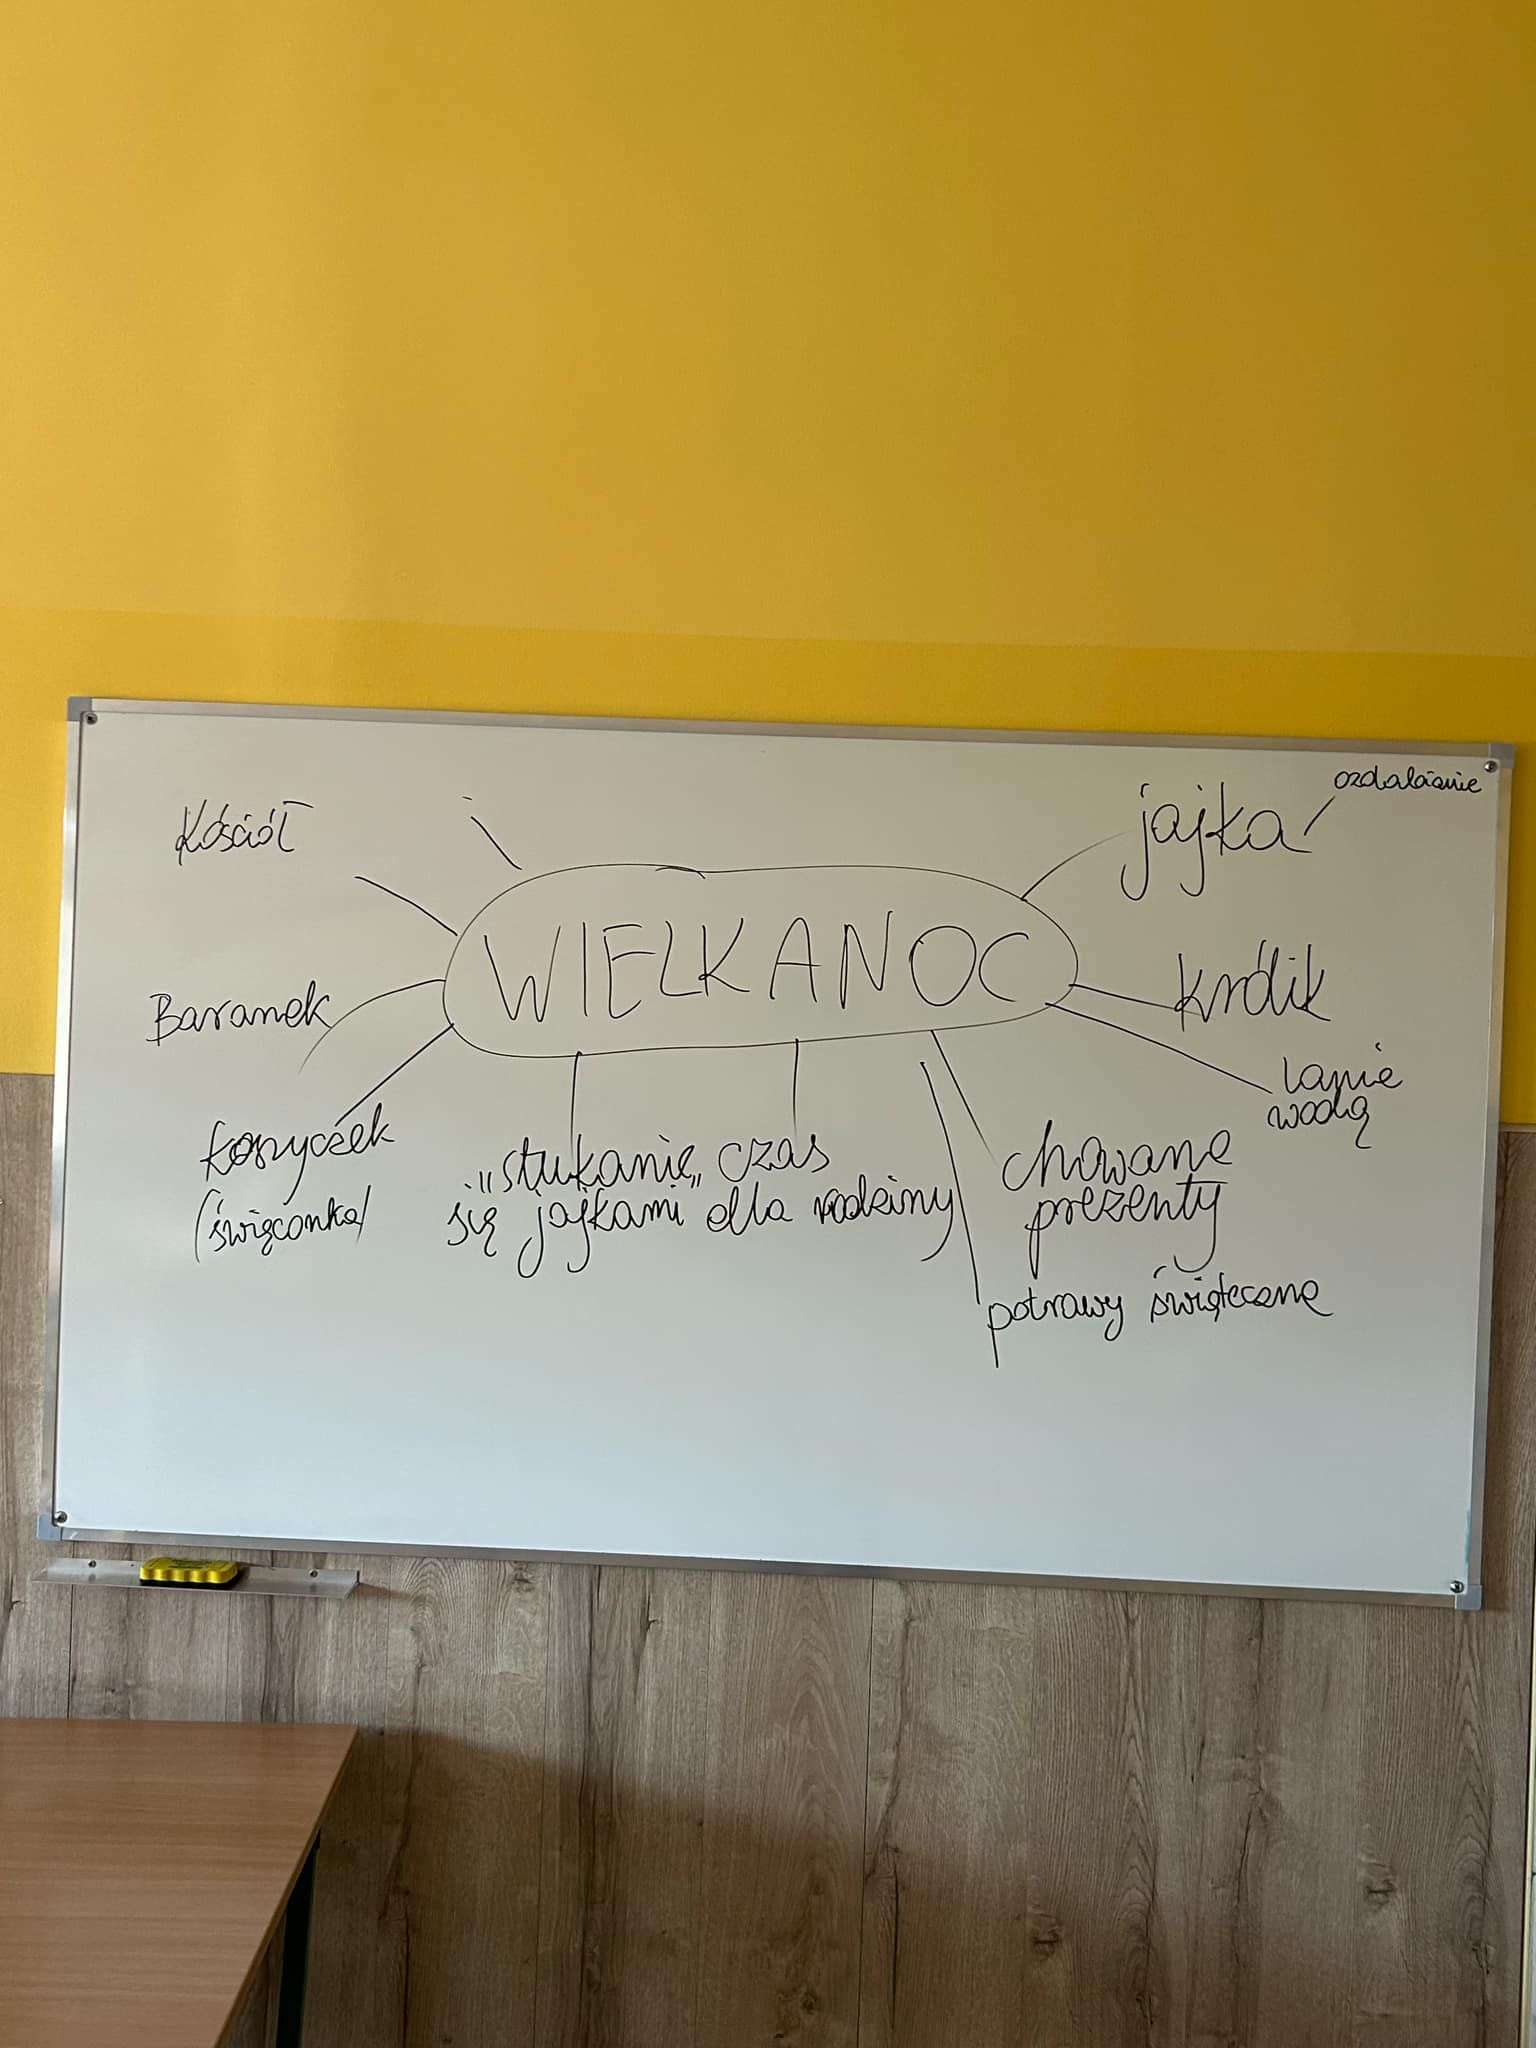 Kościół
WIELKANOC
jajka
ozdabianie
Baranek
królik
lanie
wodą
koszyczek
(święconka)
„stukanie„
się jajkami
czas
dla rodziny
chowane
prezenty
potrawy świąteczne